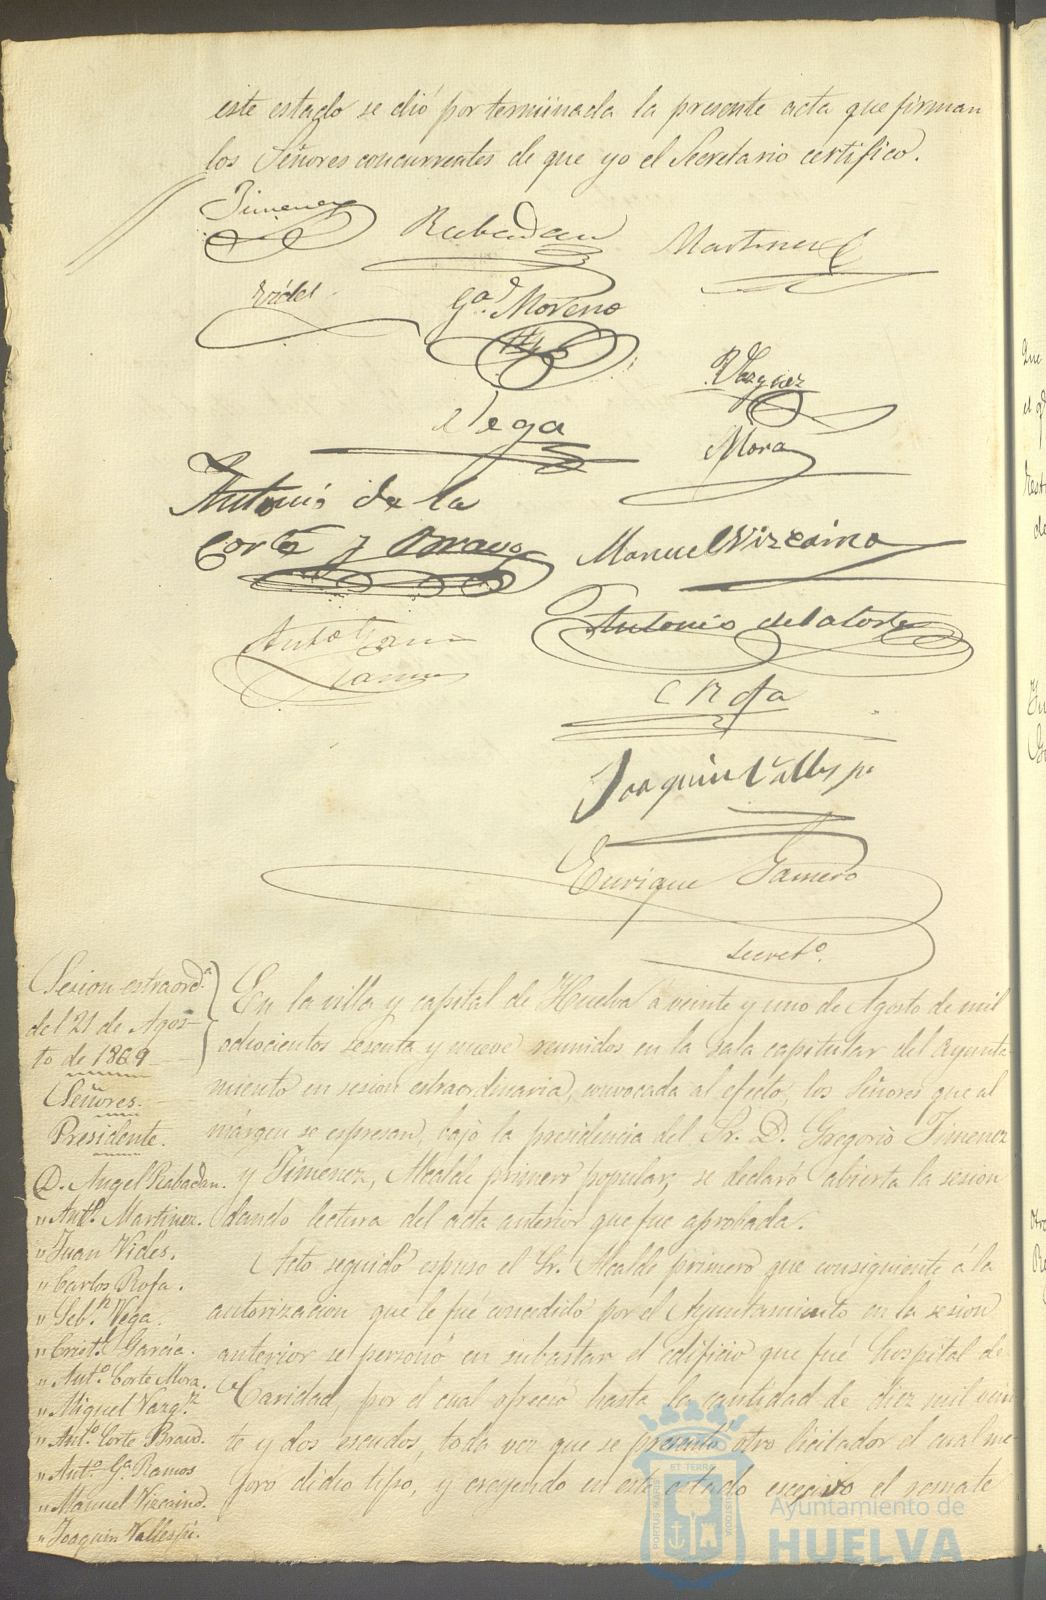 este estado se dió por terminada la presente acta que firman
los Señores concurrentes de que yo el Secretario certifico.
Jimenez
Rabadan
Martinez
Vides
Ga. Moreno
Vazquez
Vega
Mora
Antonio de la
Corte y Bravo
Manuel Vizcaino
Anto Garcia
Ramos
Antonio de la Corte
C Rofa
Joaquin Vallespi
Enrique Gamero
Secreto.
Sesion estraorda.
del 21 de Agos-
to de 1869
Señores.
Presidente.
D. Angel Rabadan.
" Anto. Martinez.
" Juan Vides.
" Carlos Rofa.
" Sebn. Vega.
" Cristl. García.
" Anto. Corte Mora.
" Miguel Vazqz.
" Anto. Corte Bravo.
" Anto. Ga. Ramos
" Manuel Vizcaino.
" Joaquin Vallespi.
En la villa y capital de Huelva a veinte y uno de Agosto de mil
ochocientos sesenta y nueve reunidos en la sala capitular del Ayunta-
miento en sesion estraordinaria, convocada al efecto, los Señores que al
márgen se espresan, bajo la presidencia del Sr. D. Gregorio Jimenez
y Jimenez, Alcalde primero popular, se declaró abierta la sesion
dando lectura del acta anterior que fue aprobada.
Acto seguido espuso el Sr. Alcalde primero que consiguiente á la
autorizacion que le fué concedida por el Ayuntamiento en la sesion
anterior se personó en subastar el edificio que fué hospital de
Caridad, por el cual ofreció hasta la cantidad de diez mil vein
te y dos escudos, toda vez que se presentó otro licitador el cual me-
joro dicho tipo, y creyendo en este estado escesivo el remate
PORTUS MARIS
ET TERRAE
CUSTODIA
Ayuntamiento de
HUELVA